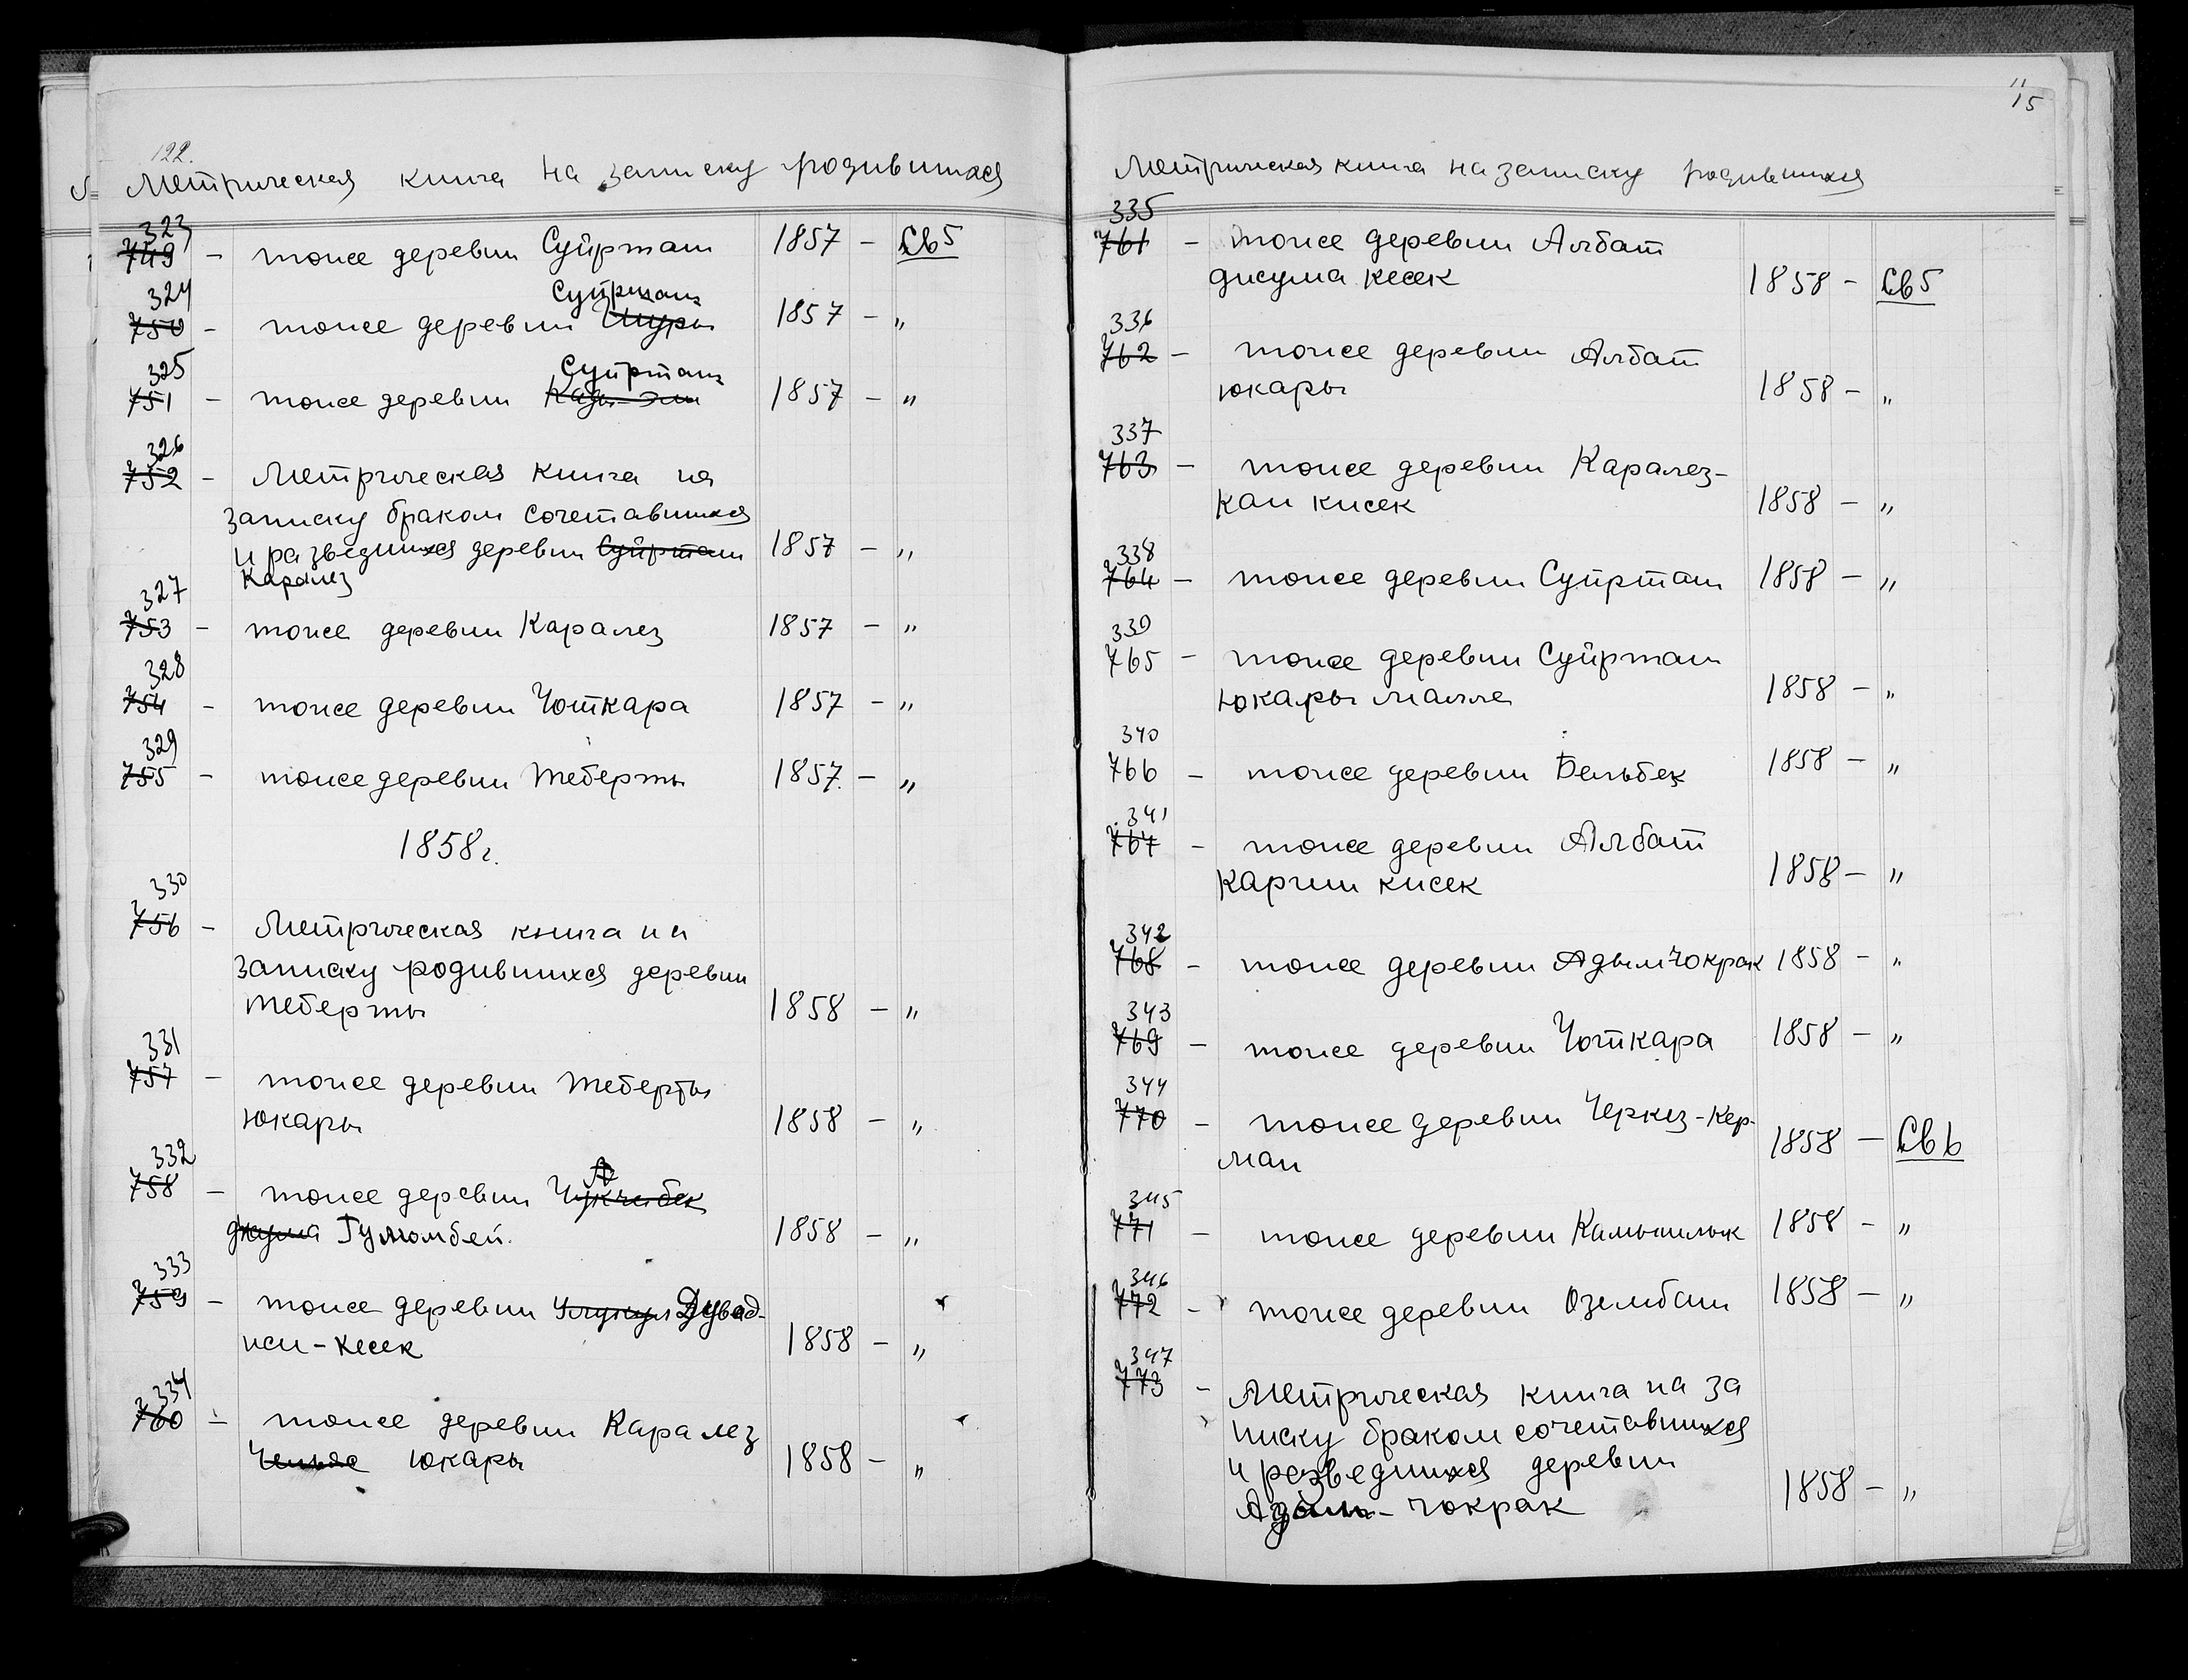 122.
Метрическая книга на записку родившихся
323
749 - тоже деревни Суйрташ 1857 - Св 5
324 Суйрташ
750 - тоже деревни Шуры 1857 - "
325 Суйрташ
751 - тоже деревни Кады-Эли 1857 - "
326
752 - Метрическая книга на
записку браком сочетавшихся
и разведшихся деревни Суйрташ 1857 - "
Каралез
327
753 - тоже деревни Каралез 1857 - "
328
754 - тоже деревни Чоткара 1857 - "
329
755 - тоже деревни Теберты 1857. - "
1858г.
330
756 - Метрическая книга на
записку родившихся деревни
Теберты 1858 - "
331
757 - тоже деревни Теберты
юкары 1858 - "
332
758 - тоже деревни
джума Гулюмбей. 1858 - "
333
759 - тоже деревни Дувад-
жи-кесек 1858 - "
334
760 - тоже деревни Каралез
юкары 1858 - "
11
15
Метрическая книга на записку родившихся
335
761 - тоже деревни Албат
джума кесек 1858 - Св 5
336
762 - тоже деревни Албат
юкары 1858 - "
337
763 - тоже деревни Каралез-
кан кисек 1858 - "
338
764 - тоже деревни Суйрташ 1858 - "
339
765 - тоже деревни Суйрташ
юкары малле 1858 - "
340
766 - тоже деревни Бельбек 1858 - "
341
767 - тоже деревни Албат
каргии кисек 1858 - "
342
768 - тоже деревни Адымчокрак 1858 - "
343
769 - тоже деревни Чоткара 1858 - "
344
770 - тоже деревни Черкез-Кер-
ман 1858 - Св 6
345
771 - тоже деревни Камышлык 1858 - "
346
772 - тоже деревни Озембаш 1858 - "
347
773 - Метрическая книга на за
писку браком сочетавшихся
и разведшихся деревни
Адым-чокрак 1858 - "